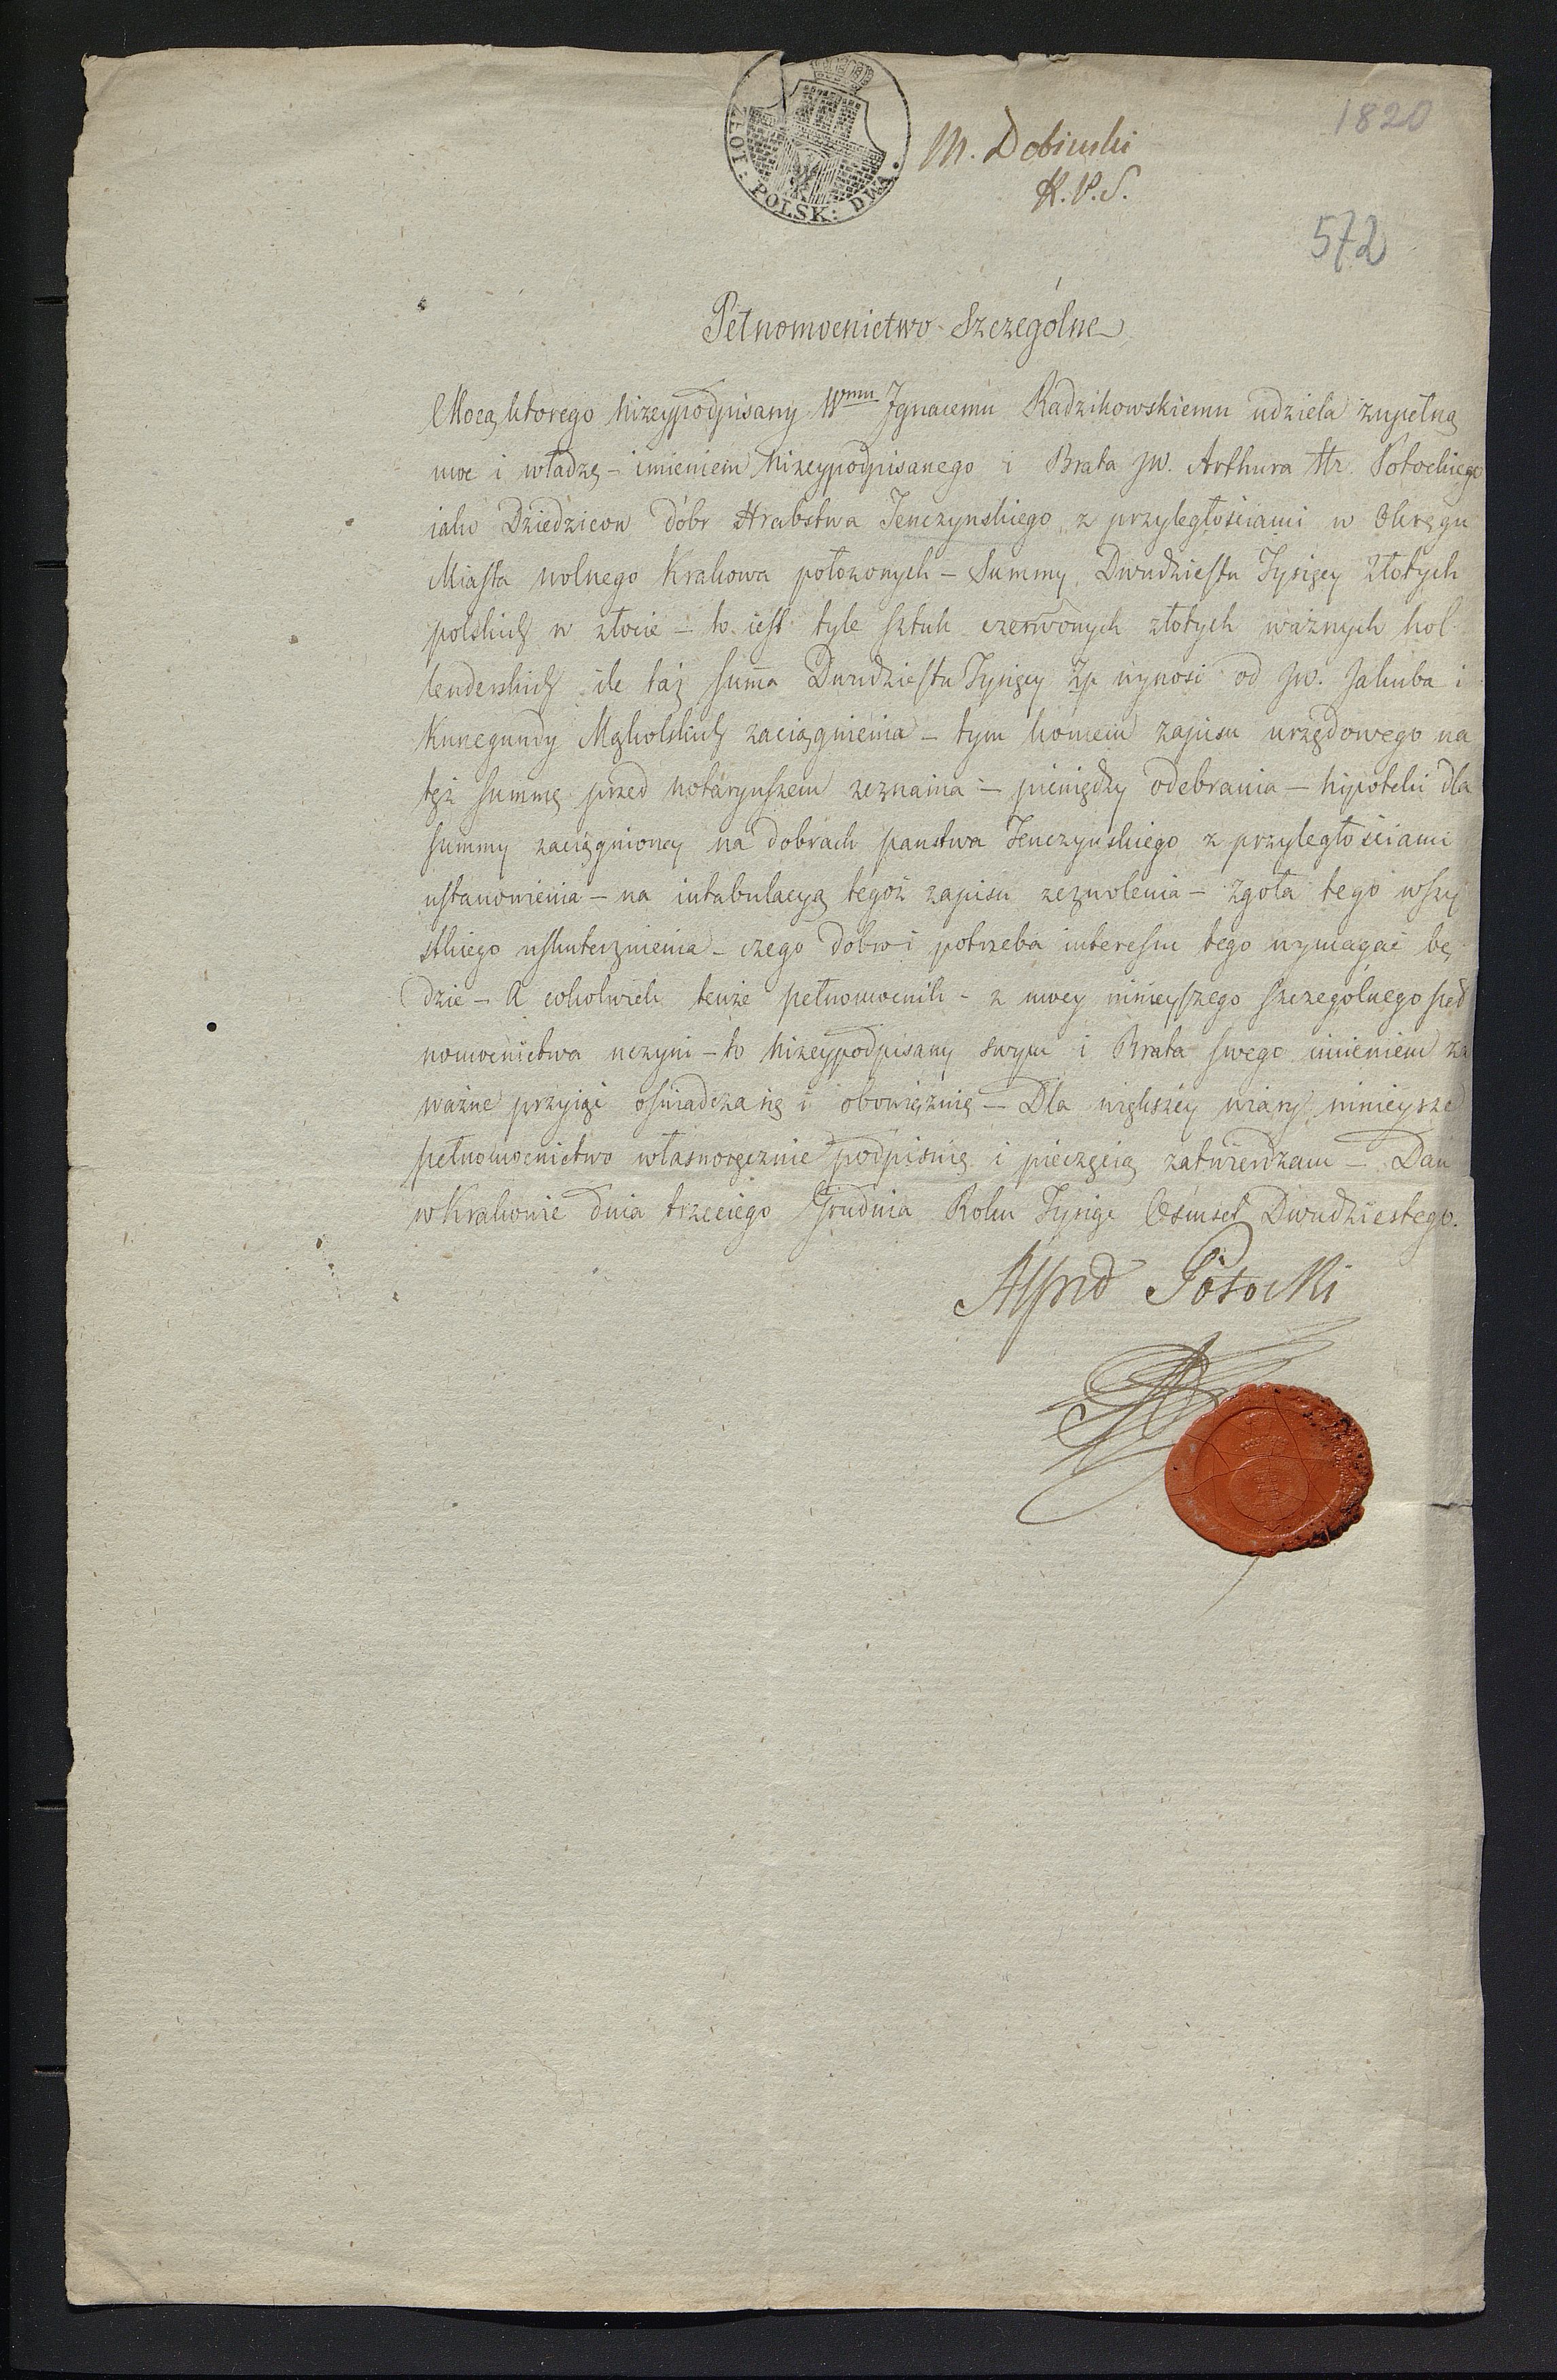 1820
ZŁOT: POLSK: DWA.
M. Dobinski
K.P.S.
572
Pełnomocnictwo Szczególne
Mocą ktorego niżeypodpisany Wmu Jgnacemu Radzikowskiemu udziela zupełną
moc i władzę - imieniem niżeypodpisanego i Brata JW. Arthura Hr. Potockiego
iako Dziedzicow dóbr Hrabstwa Tenczynskiego z przyległościami w Okręgu
Miasta wolnego Krakowa położonych - Summy Dwudziestu Tysięcy Złotych
polskich w złocie - to iest tyle sztuk czerwonych złotych ważnych hol-
lenderskich ile taż summa Dwudziestu Tysięcy Zp wynosi od JW. Jakuba i
Kunegundy Mąkolskich zaciągnienia - tym koncem zapisu urzędowego na
tęż summę przed notaryuszem zeznania - pieniędzy odebrania - hipoteki dla
summy zaciągnioney na dobrach panstwa Tenczynskiego z przyległościami
ustanowienia - na intabulacyą tegoż zapisu zezwolenia - zgoła tego wszy
stkiego uskutecznienia - czego dobro i potrzeba interessu tego wymagać bę
dzie - A cokolwiek tenże pełnomocnik - z mocy ninieyszego szczególnego peł
nomocnictwa uczyni - to niżeypodpisany swym i Brata swego imieniem za
ważne przyiąć oświadcza się i obowięznie - Dla większey wiary ninieysze
pełnomocnictwo własnoręcznie podpisuię i pieczęcią zatwierdzam - Dan
w Krakowie dnia trzeciego Grudnia Roku Tysiąc Osmset Dwudziestego.
Alfred Potocki